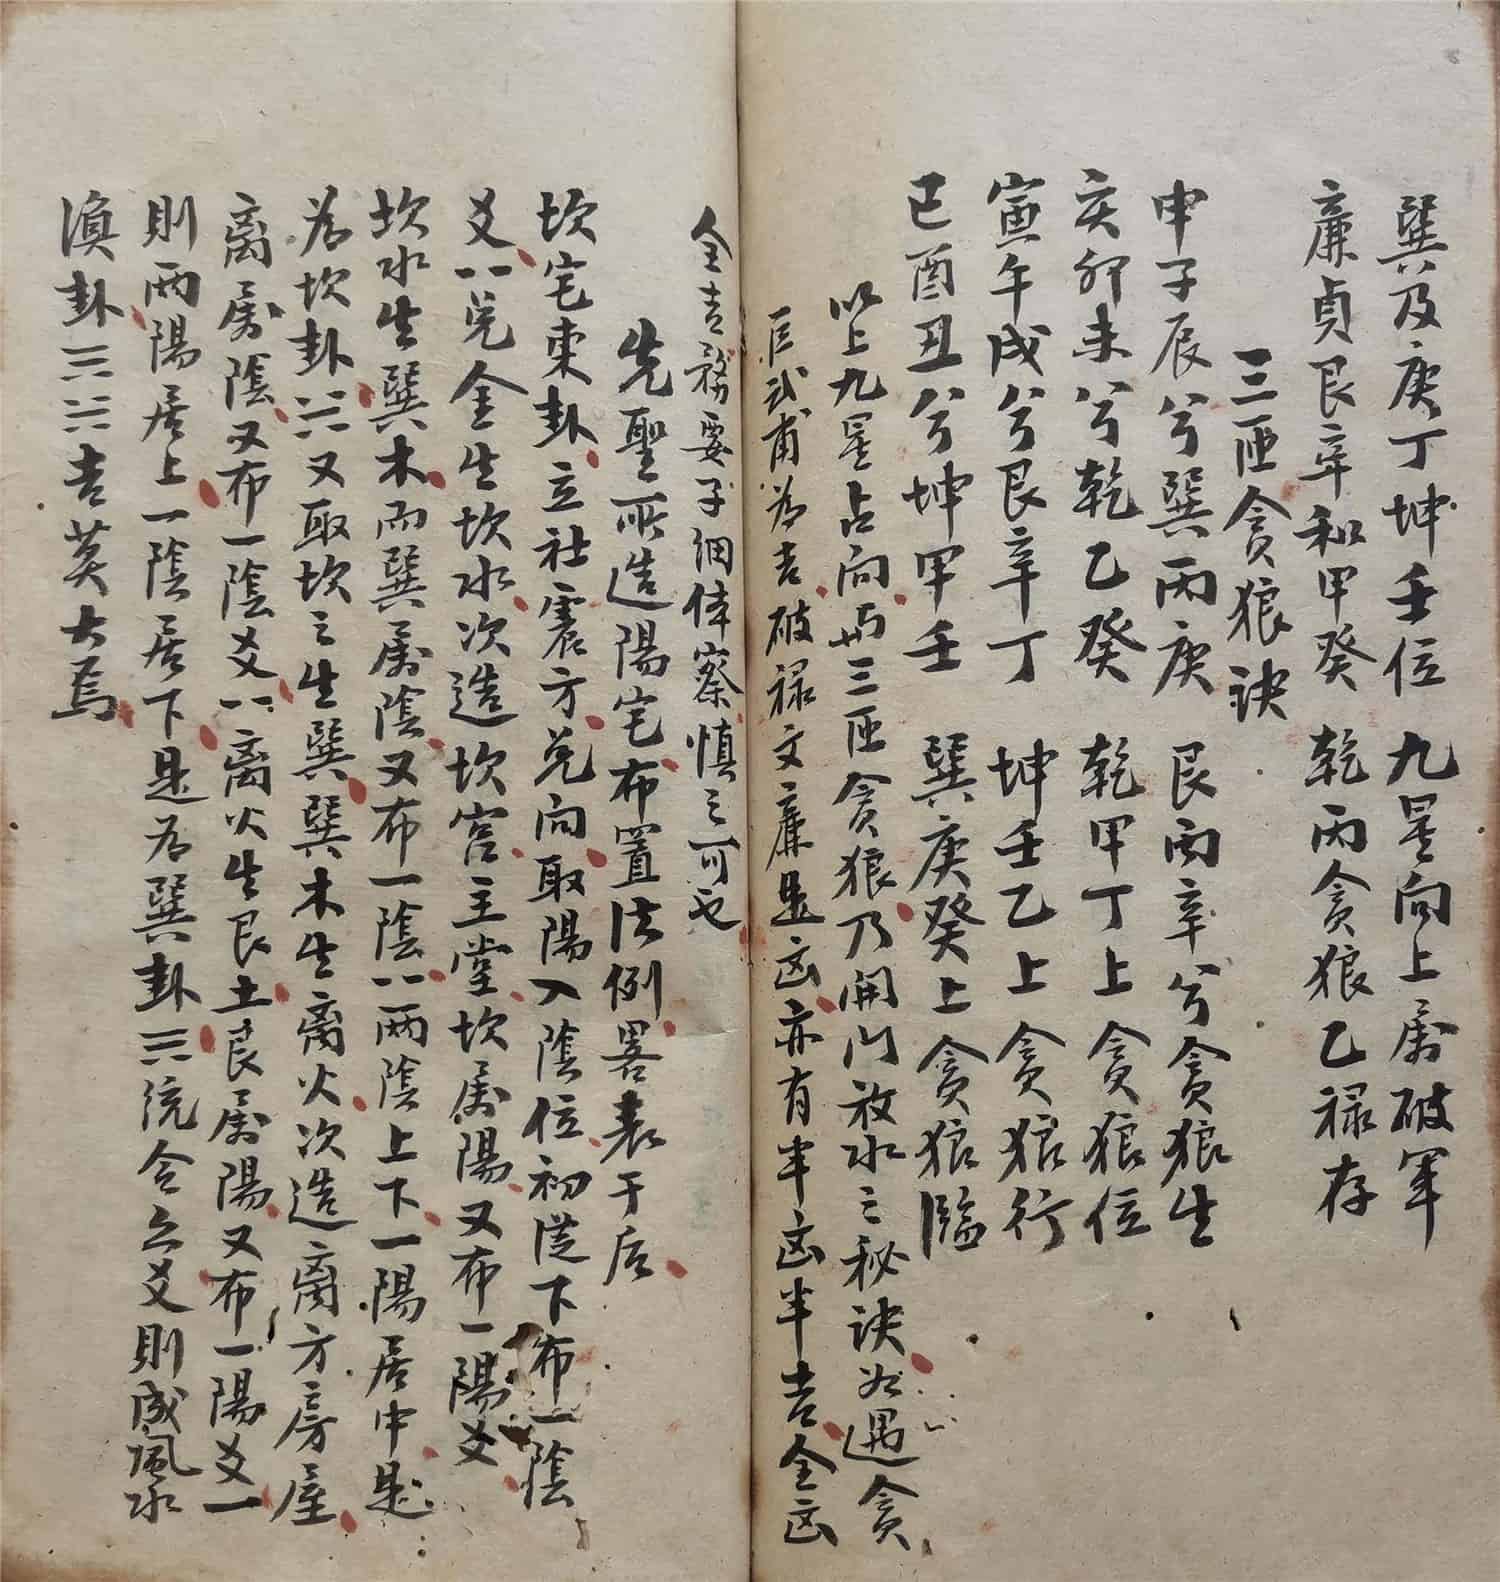 巽及庚丁坤壬位 九星向上屬破軍
廉貞艮辛和甲癸 乾丙貪狼乙祿存
三匝貪狼訣
申子辰兮巽丙庚 艮丙辛兮貪狼生
亥卯未兮乾乙癸 乾甲丁上貪狼位
寅午戌兮艮辛丁 坤壬乙上貪狼行
巳酉丑兮坤甲壬 巽庚癸上貪狼臨
以上九星占向與三匝貪狼乃開門放水之秘訣如遇貪
巨武甫為吉破祿文廉是凶亦有半凶半吉全凶
全吉務要子細体察慎之可也
先聖所造陽宅布置法例畧表于后
坎宅東卦立社震方兌向取陽入陰位初從下布一陰
爻⚋兌金生坎水次造坎宮主堂坎屬陽又布一陽爻
坎水生巽木而巽屬陰又布一陰⚋兩陰上下一陽居中是
為坎卦☵又取坎之生巽巽木生离火次造离方房屋
离屬陰又布一陰爻⚋离火生艮土艮屬陽又布一陽爻一
則兩陽居上一陰居下是為巽卦☴統合六爻則成風水
渙卦☴☵吉莫大焉